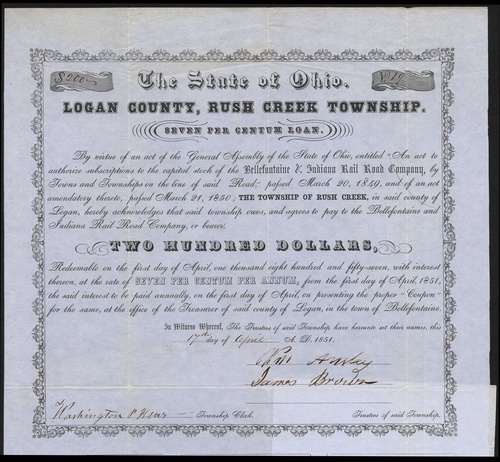 $200
No 10
The State of Ohio.
LOGAN COUNTY, RUSH CREEK TOWNSHIP.
SEVEN PER CENTUM LOAN.
By virtue of an act of the General Assembly of the State of Ohio, entitled "An act to
authorize subscriptions to the capital stock of the Bellefontaine & Indiana Rail Road Company, by
Towns and Townships on the line of said Road," passed March 20, 1849, and of an act
amendatory thereto, passed March 21, 1850; THE TOWNSHIP OF RUSH CREEK, in said county of
Logan, hereby acknowledges that said township owes, and agrees to pay to the Bellefontaine and
Indiana Rail Road Company, or bearer,
TWO HUNDRED DOLLARS,
Redeemable on the first day of April, one thousand eight hundred and fifty-seven, with interest
thereon, at the rate of SEVEN PER CENTUM PER ANNUM, from the first day of April, 1851,
the said interest to be paid annually, on the first day of April, on presenting the proper "Coupon"
for the same, at the office of the Treasurer of said county of Logan, in the town of Bellefontaine.
In Witness Whereof, The Trustees of said Township have hereunto set their names, this
17th day of April A. D. 1851.
James
Washington Township Clerk. Trustees of said Township.